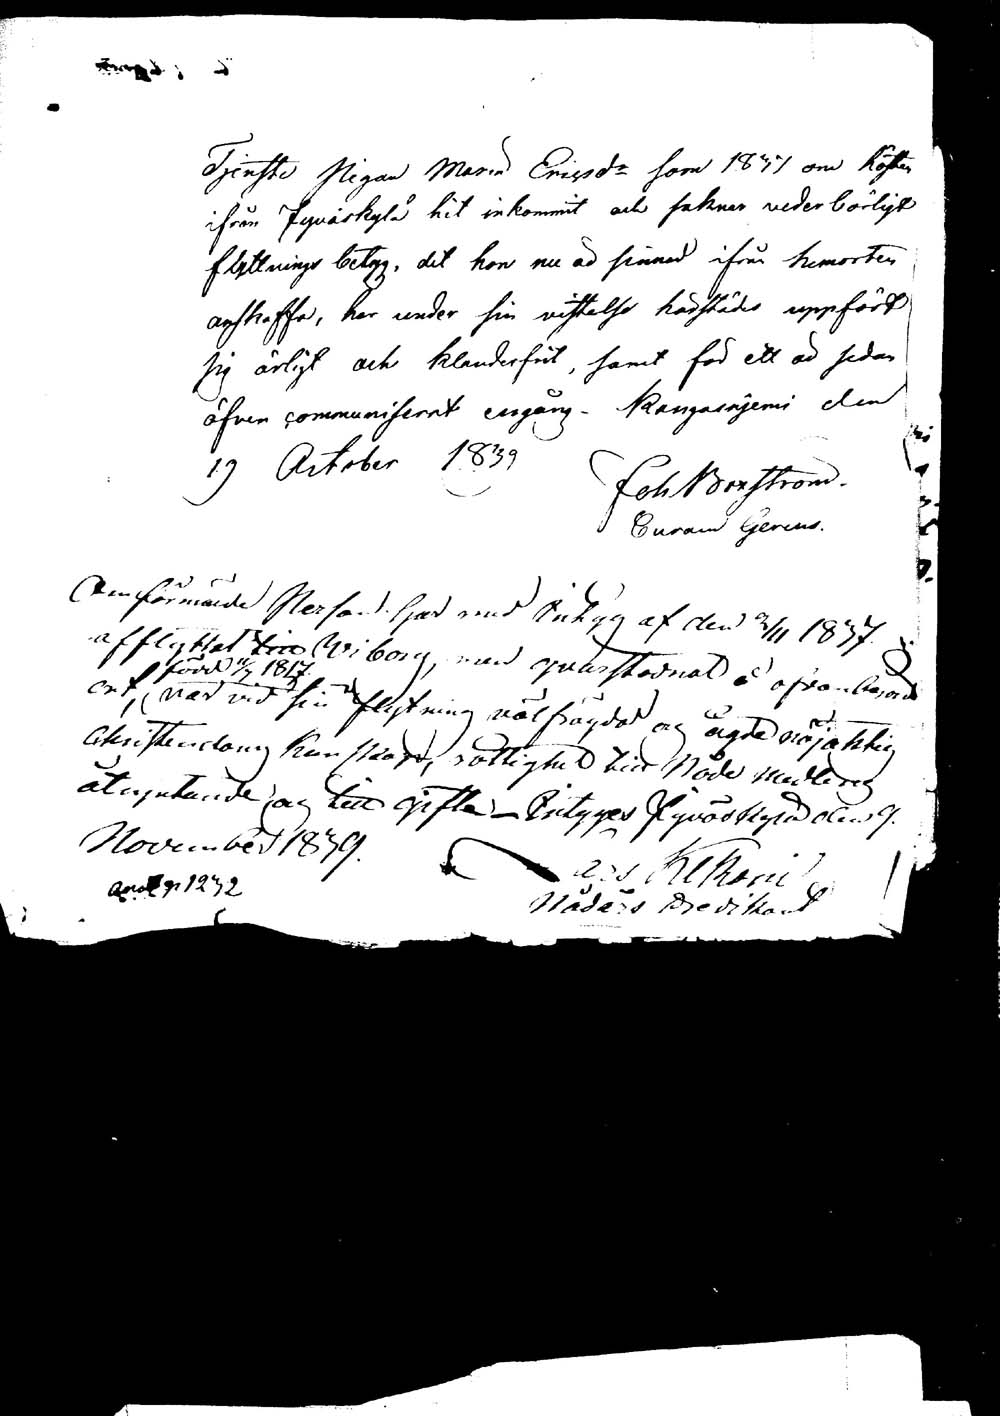 Tjenste Pigan Maria Ericsdr som 1837 om hösten
ifrån Jyväskylä hit inkommit och saknar vederbörligt
flyttnings betyg, det hon nu är sinnad ifrån hemorten
anskaffa, har under sin vistelse härstädes uppfört
sig ärligt och klanderfrit, samt för ett år sedan
äfven communiserat engång - Kangasnjemi den
19 October 1839
Joh Borgström.
Curam Gerens.
Omförmälde Person har med Intyg af den 2/11 1837
afflyttat till Wiborg, men qvarstadnat å ofvanberörde
född 11/7 1817
ort, var vid sin flyttning välfrägdad og ägde nöjaktig
Christendoms kunskap, rättighet till Nåde medlens
åtnjutande, og till gifte - Intyges Jyväskylä den 9.
November 1839.
Kekoni
Nådårs Predikant
1232